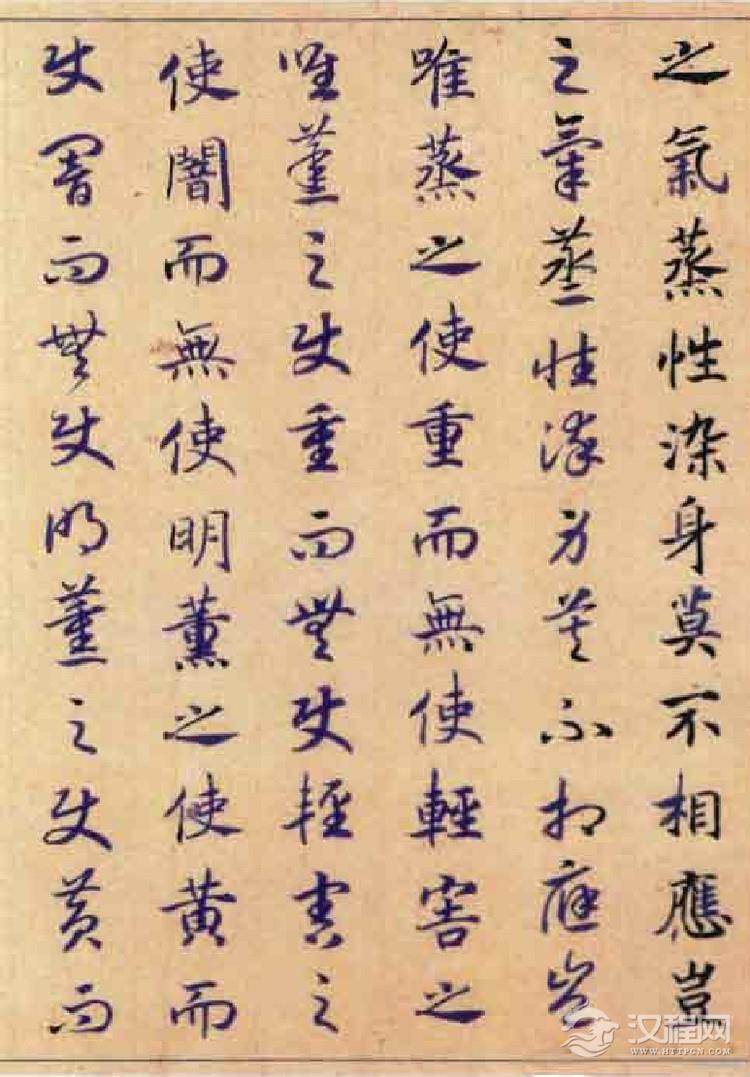 之氣蒸性染身莫不相應豈
之氣蒸性染身莫不相應豈
唯蒸之使重而無使輕害之
唯蒸之使重而無使輕害之
使闇而無使明薰之使黃而
使闇而無使明薰之使黃而
汉程网
WWW.HTTPCN.COM